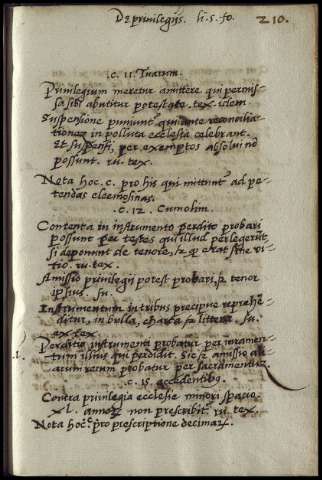 De privilegijs. li. 5. fo. 210.
.c. 11. Tuarum.
Privilegium meretur amittere qui permis-
sa sibi abutitur potestate. tex. idem
Suspensione puniunt qui ante reconcilia-
tionem in polluta ecclesia celebrant.
Et suspensi, per exemptos absolui nõ
possunt. ru. tex.
Nota hoc. c. pro his qui mittunt ad pe-
tendas eleemosinas.
.c. 12. Cum olim.
Contenta in instrumento perdito probari
possunt per testes qui illud perlegerũt
si deponunt de tenore, & quod erat sine vi-
tio. ru. tex.
Amissio privilegii potest probari, & tenor
ipsius. su.
Instrumentum in tribus precipue reprehẽ-
ditur, in bulla, charta & littera. su.
ex tex.
Perditio instrumenti probatur per iuramen-
tum illius qui perdidit. Sic & amissio
rerum probatur per sacramentum.
.c. 15. accedentibus.
Contra privilegia ecclesie minori spacio
xl. annorum non prescribitur. ru. tex.
Nota hoc. c. pro prescriptione decimarum.